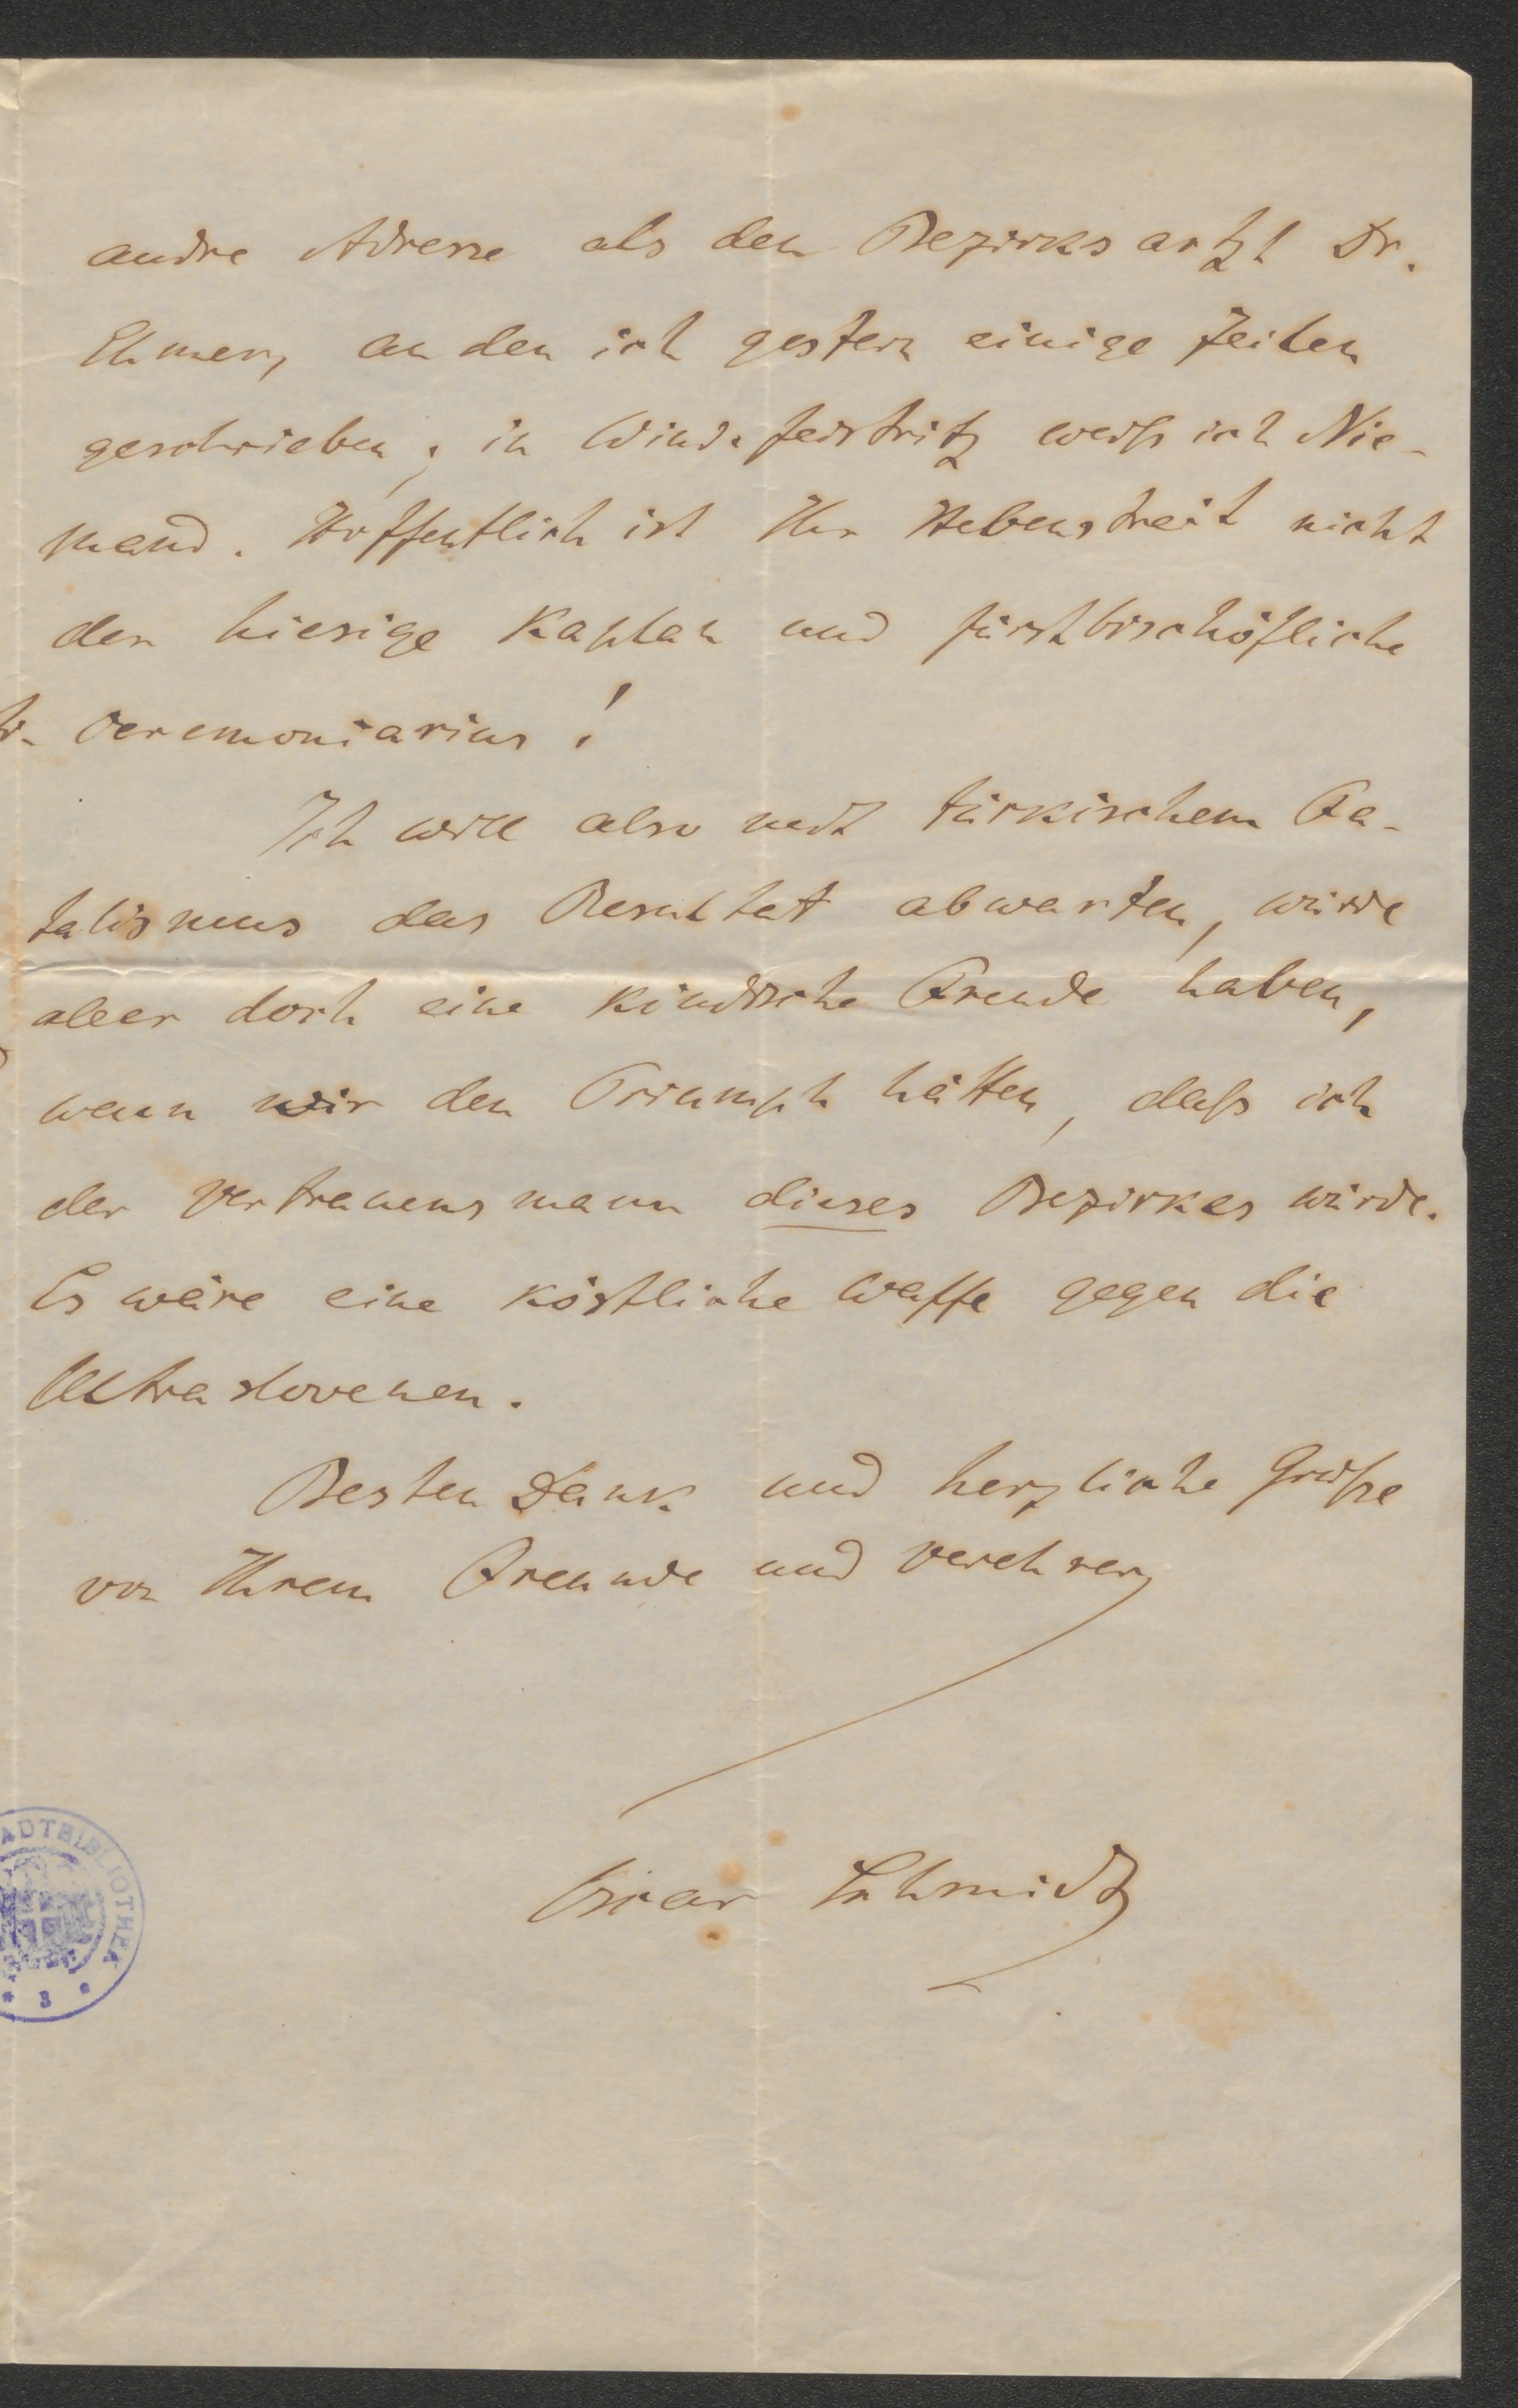 andre Adresse als den Bezirksartzt Dr.
Ehmer, an den ich gestern einige Zeilen
geschrieben; in Wind. feistritz weiß ich Nie-
mand. Hoffentlich ist Ihr Hebenstreit nicht
der hiesige Kaplan und fürstbischöfliche
Ceremoniarius!
Ich will also mit türkischem Fa-
talismus das Resultat abwarten, würde
aber doch eine kindische Freude haben,
wenn wir den Triumph hätten, daß ich
der Vertrauensmann dieses Bezirkes würde.
Es wäre eine köstliche Waffe gegen die
Ultraslovenen.
Besten Dank und herzliche Grüße
von Ihrem Freunde und Verehrer
Oscar Schmidt
ADTBIBLIOTHEK
* 3 *